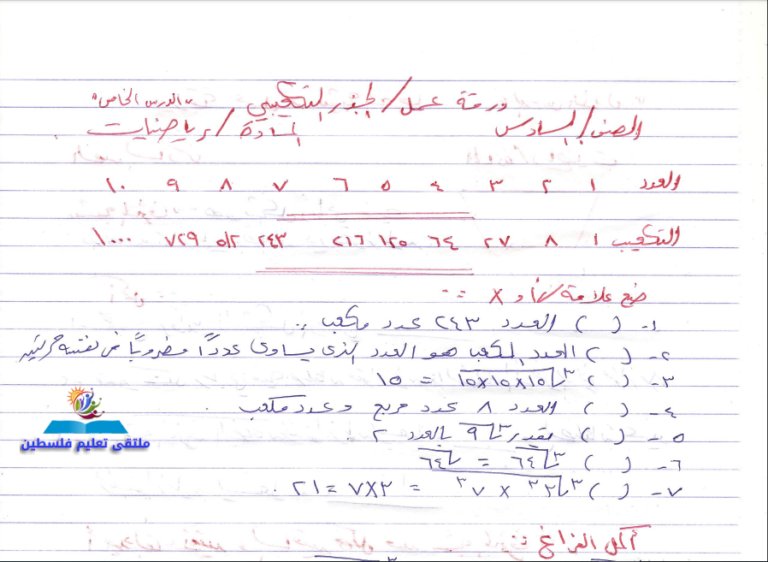 ورقة عمل / الجذر التكعيبي "الدرس الخامس"
الصف / السادس المادة / رياضيات
العدد ١ ٢ ٣ ٤ ٥ ٦ ٧ ٨ ٩ ١٠
التكعيب ١ ٨ ٢٧ ٦٤ ١٢٥ ٢١٦ ٢٤٣ ٥١٢ ٧٢٩ ١٠٠٠
ضع علامة √ أو X :-
١- ( ) العدد ٢٤٣ عدد مكعب .
٢- ( ) العدد المكعب هو العدد الذي يساوي عدداً مضروباً في نفسه مرتين
٣- ( ) ∛١٥×١٥×١٥ = ١٥
٤- ( ) العدد ٨ عدد مربع وعدد مكعب .
٥- ( ) يقدر ∛٩ بالعدد ٢ .
٦- ( ) ∛٦٤ = √٦٤
٧- ( ) ∛٣٣ × ٧٣ = ٣×٧ = ٢١ .
أكمل الفراغ :-
ملتقى تعليم فلسطين